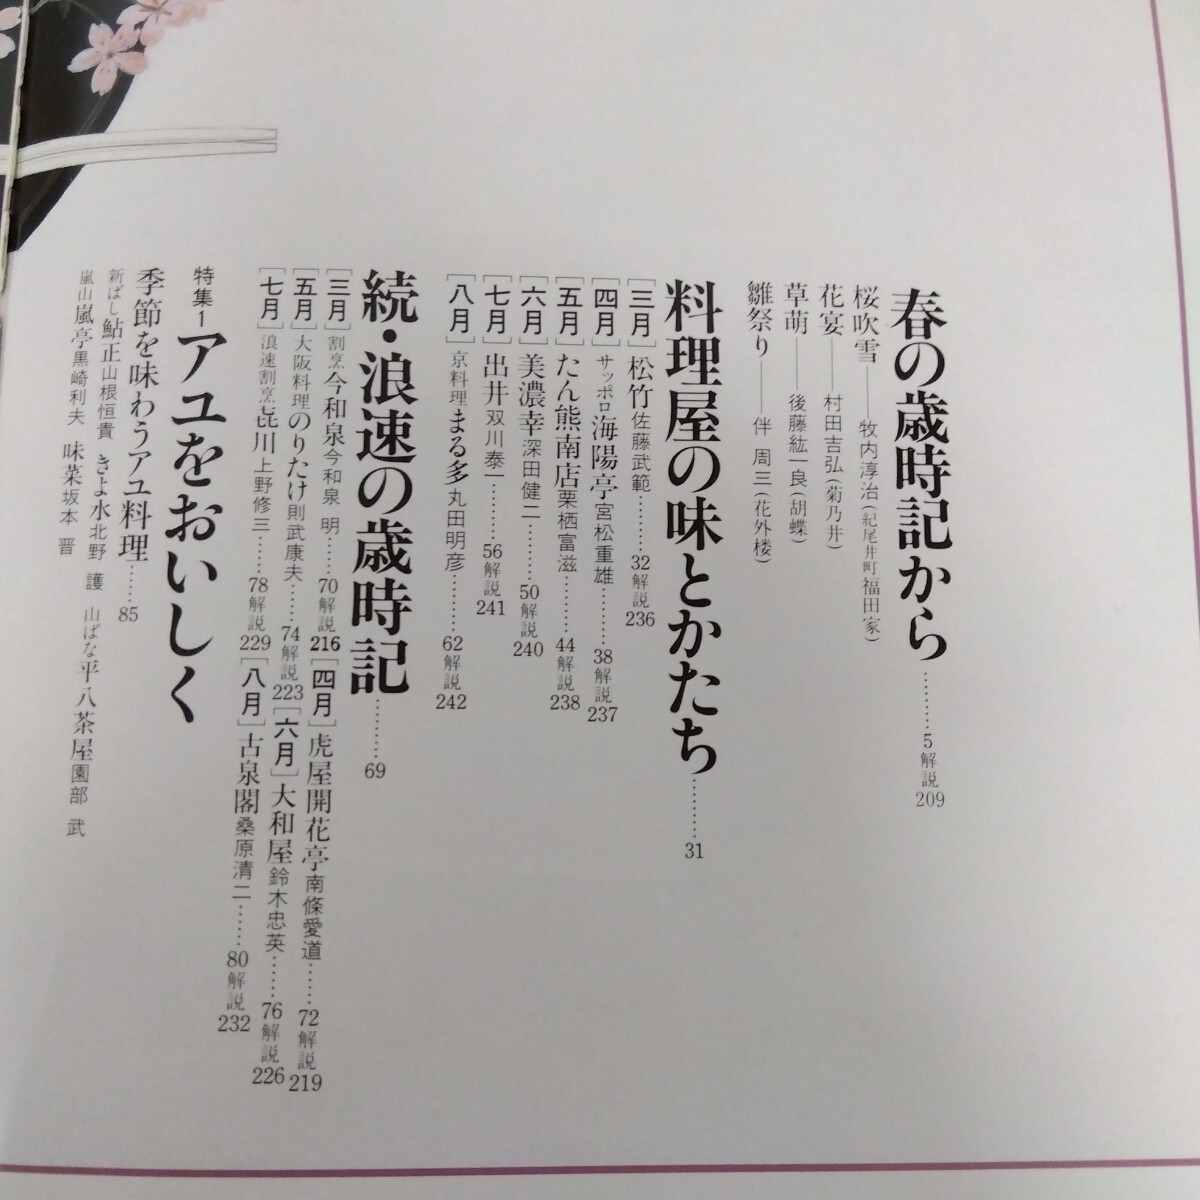 春の歳時記から………5 解説 209
桜吹雪――牧内淳治(紀尾井町 福田家)
花宴――村田吉弘(菊乃井)
草萌――後藤紘一良(胡蝶)
雛祭り――伴 周三(花外楼)
料理屋の味とかたち………31
[三月]松竹 佐藤武範………32 解説 236
[四月]サッポロ 海陽亭 宮松重雄………38 解説 237
[五月]たん熊南店 栗栖富滋………44 解説 238
[六月]美濃幸 深田健二………50 解説 240
[七月]出井 双川泰一………56 解説 241
[八月]京料理 まる多 丸田明彦………62 解説 242
続・浪速の歳時記………69
[三月]割烹 今和泉 今和泉 明……70 解説 216 [四月]虎屋開花亭 南條愛道……72 解説 219
[五月]大阪料理 のりたけ 則武康夫……74 解説 223 [六月]大和屋 鈴木忠英……76 解説 226
[七月]浪速割烹 㐂川 上野修三……78 解説 229 [八月]古泉閣 桑原清二……80 解説 232
特集1 アユをおいしく
季節を味わうアユ料理……85
新ばし 鮎正 山根恒貴 きよ水 北野 護 山ばな 平八茶屋 園部 武
嵐山 嵐亭 黒崎利夫 味菜 坂本 晋